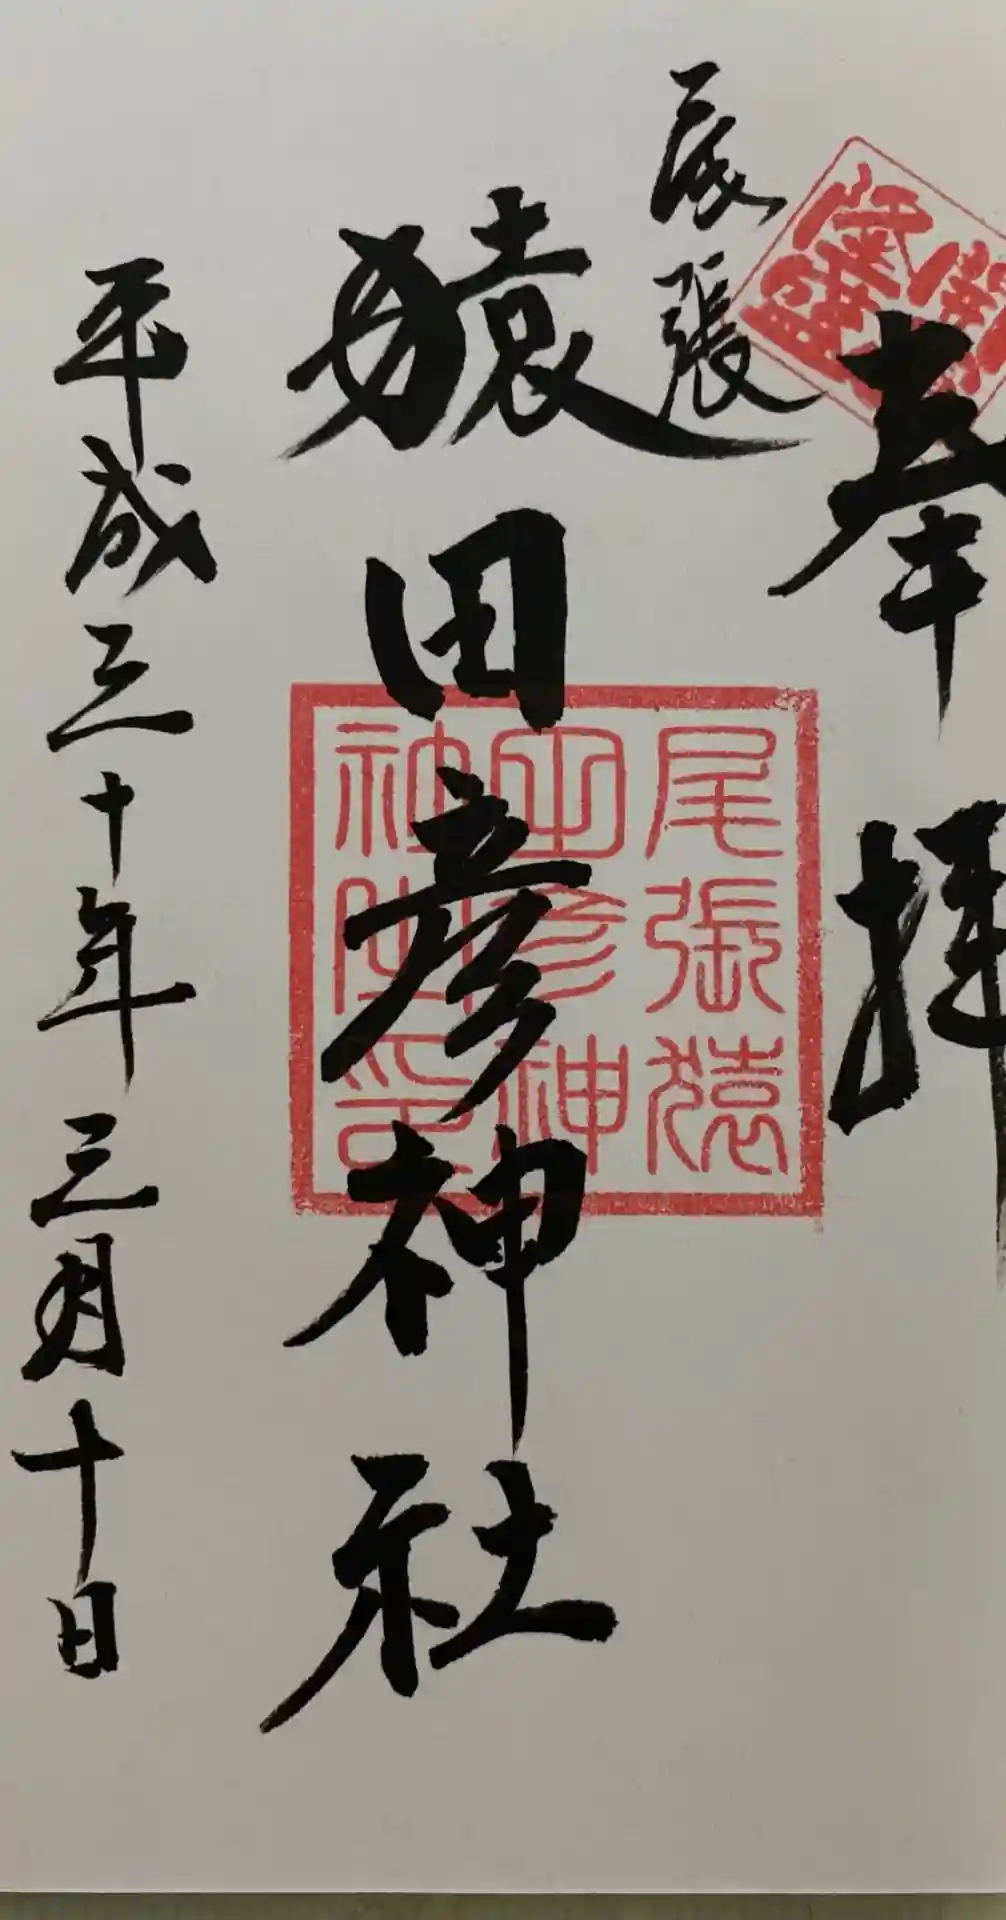 奉拝
尾張
猿田彦神社
平成三十年三月十日
尾張猿
田彦神
社印